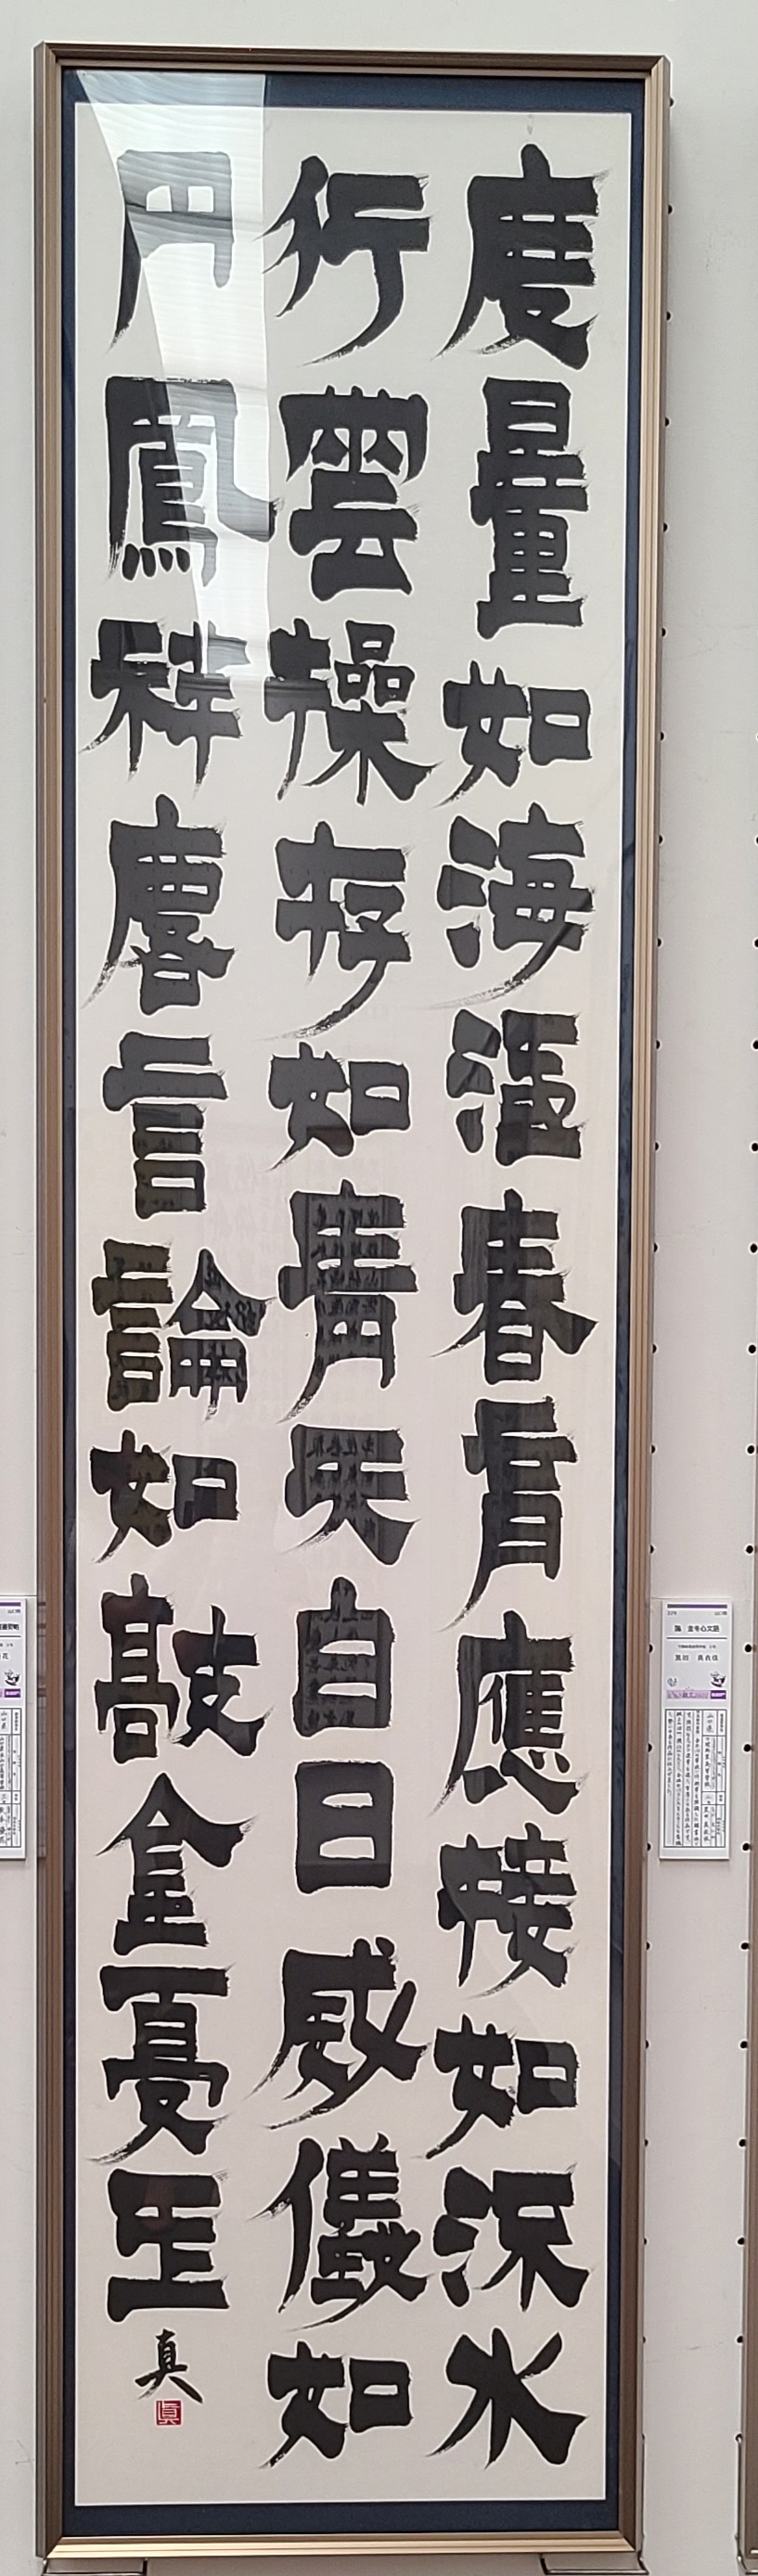 度量如海涵春育應接如流水
行雲操存如青天白日威儀如
丹鳳祥麐言論如敲金戛玉
真